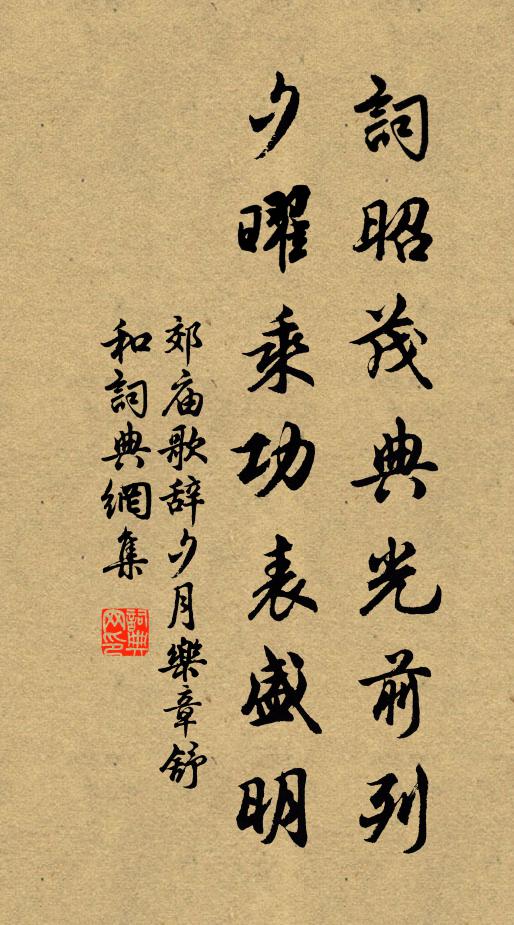 詞昭茂典光前列
夕曜乘功表盛明
郊庙歌辞夕月樂章舒
和詞典網集
詞典
网印